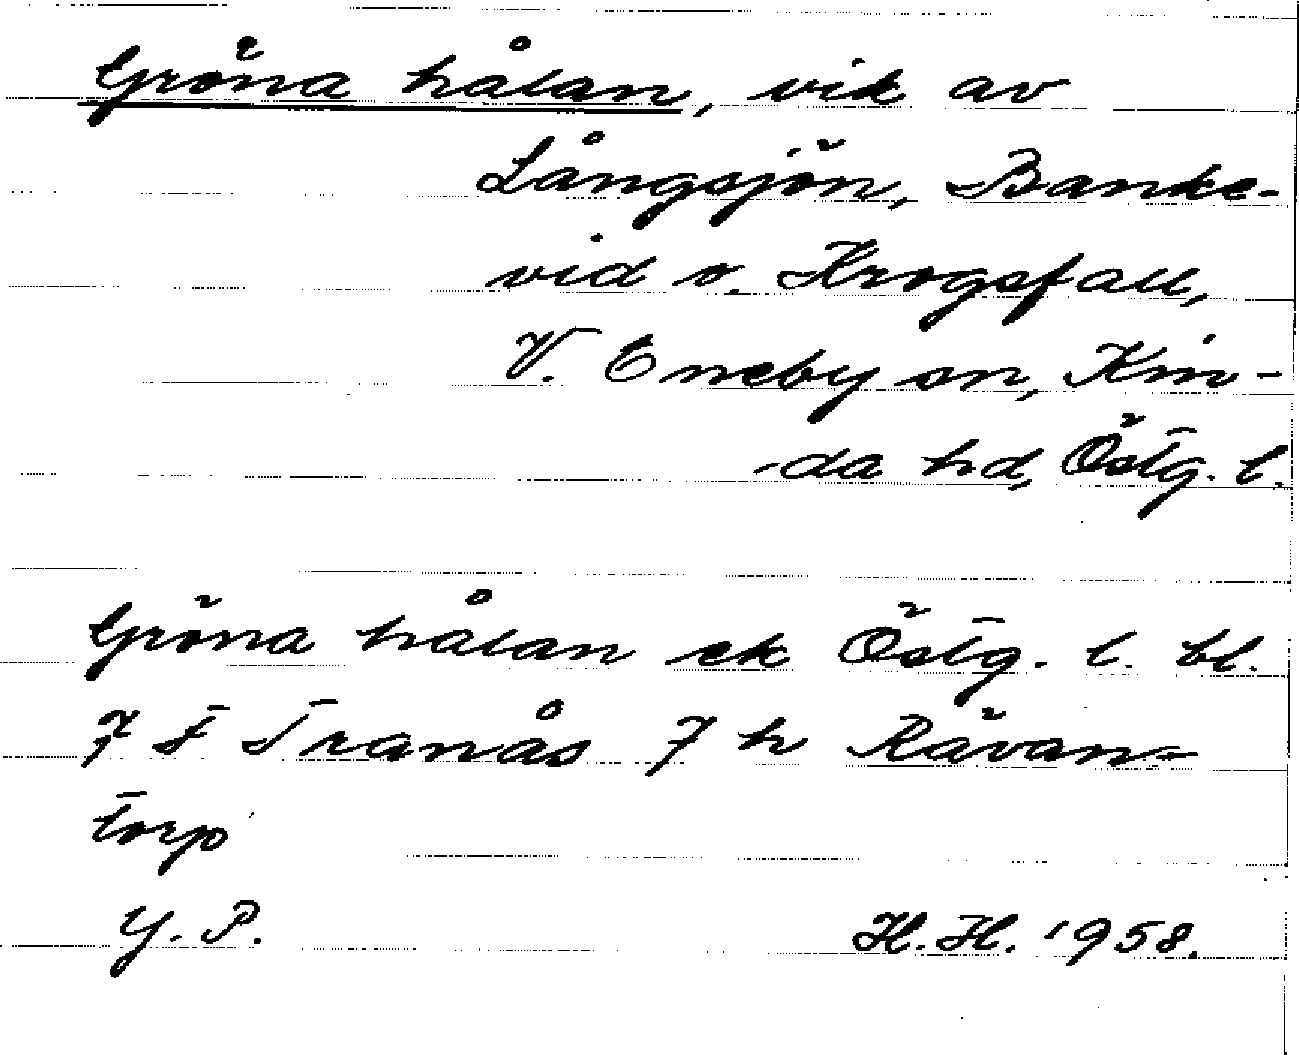 Gröna hålan, vik av
Långsjön, Banke-
vid o. Krogsfall,
V. Eneby sn, Kin-
da hd, Östg. l.
Gröna hålan ek Östg. l. bl.
7 F Tranås 7 h Rävan-
torp
Y. P. H. H. 1958.